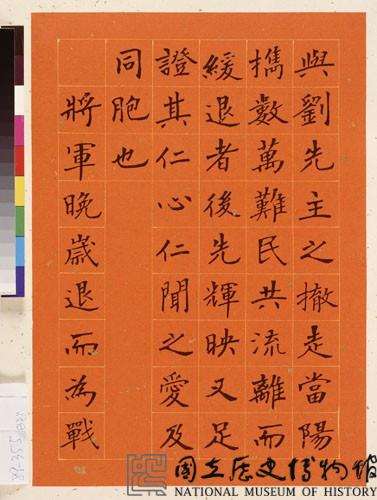 與劉先主之撤走當陽
攜數萬難民共流離而
緩退者後先輝映又足
證其仁心仁聞之愛及
同胞也
將軍晚歲退而為戰
國立歷史博物館
NATIONAL MUSEUM OF HISTORY